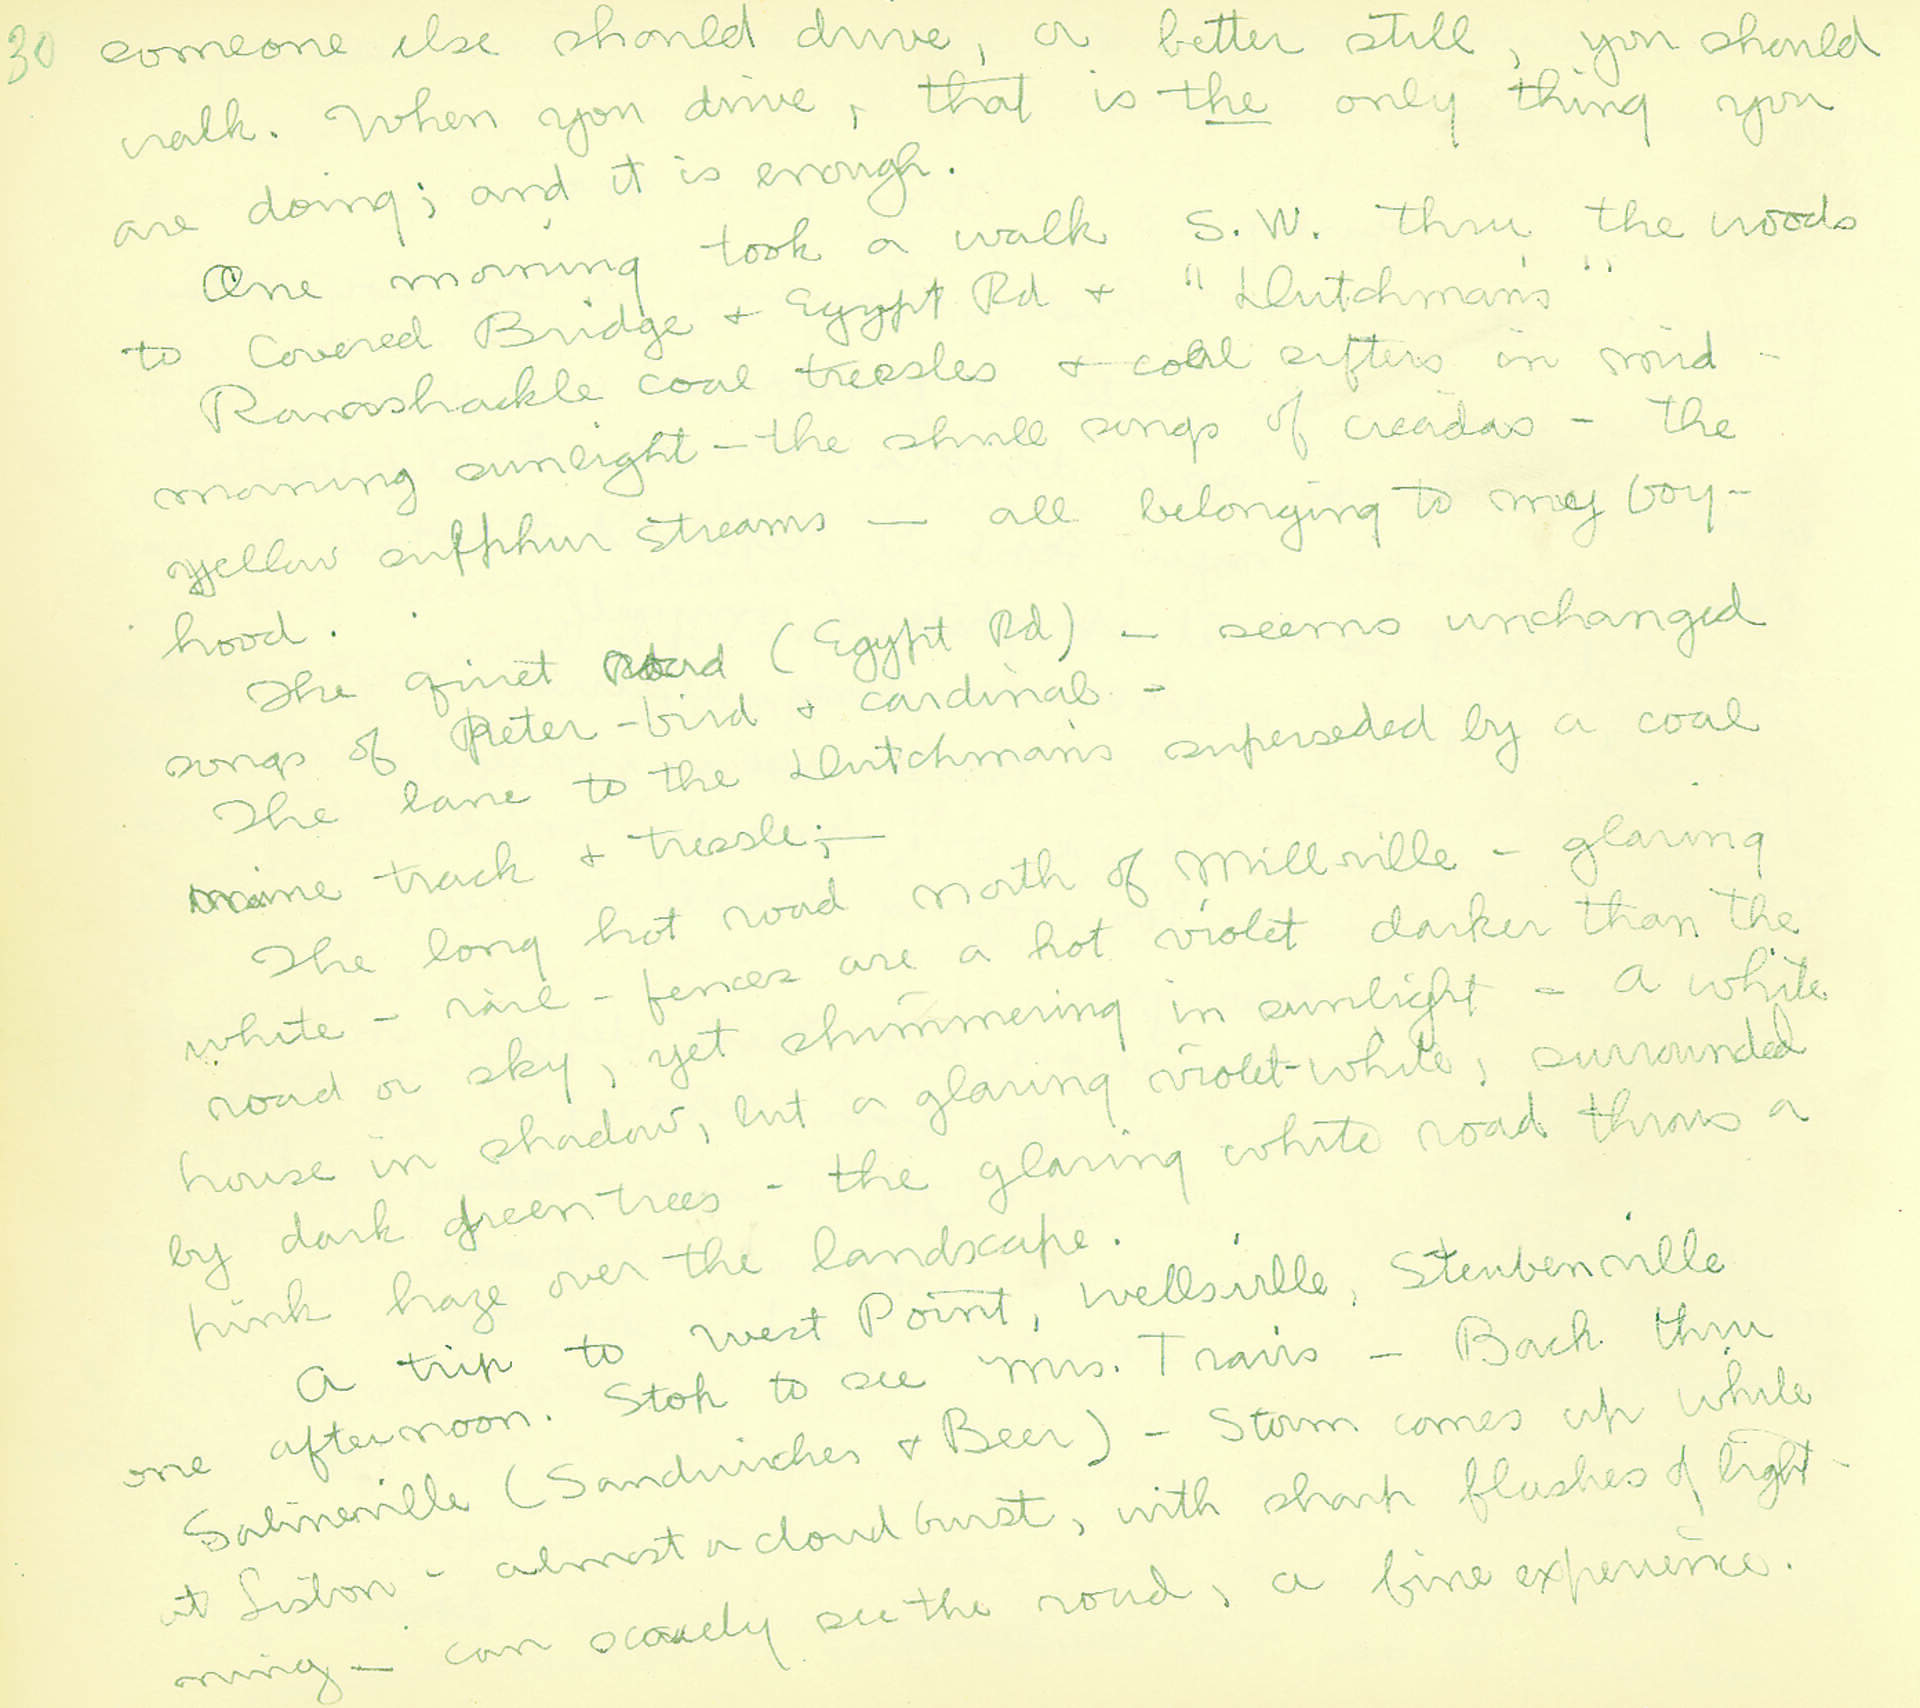 30 someone else should drive, or better still, you should
walk. When you drive, that is the only thing you
are doing; and it is enough.
One morning took a walk S.W. thru the woods
to Covered Bridge + Egypt Rd + "Dutchman's"
Ramshackle coal tressles + coal sifters in mid-
morning sunlight – the shrill songs of cicadas – the
yellow sulphur streams – all belonging to my boy-
hood.
The quiet road (Egypt Rd) – seems unchanged
songs of Peter-bird + cardinal –
The lane to the Dutchman's superseded by a coal
mine track + tressle; –
The long hot road north of Millville – glaring
white – rail-fences are a hot violet darker than the
road or sky, yet shimmering in sunlight – A white
house in shadow, but a glaring violet-white, surrounded
by dark green trees – the glaring white road throws a
pink haze over the landscape.
A trip to West Point, Wellsville, Steubenville
one afternoon. Stop to see Mrs. Travis – Back thru
Salineville (Sandwiches + Beer) – Storm comes up while
at Lisbon – almost a cloudburst, with sharp flashes of light-
ning – can scarcely see the road, a fine experience.